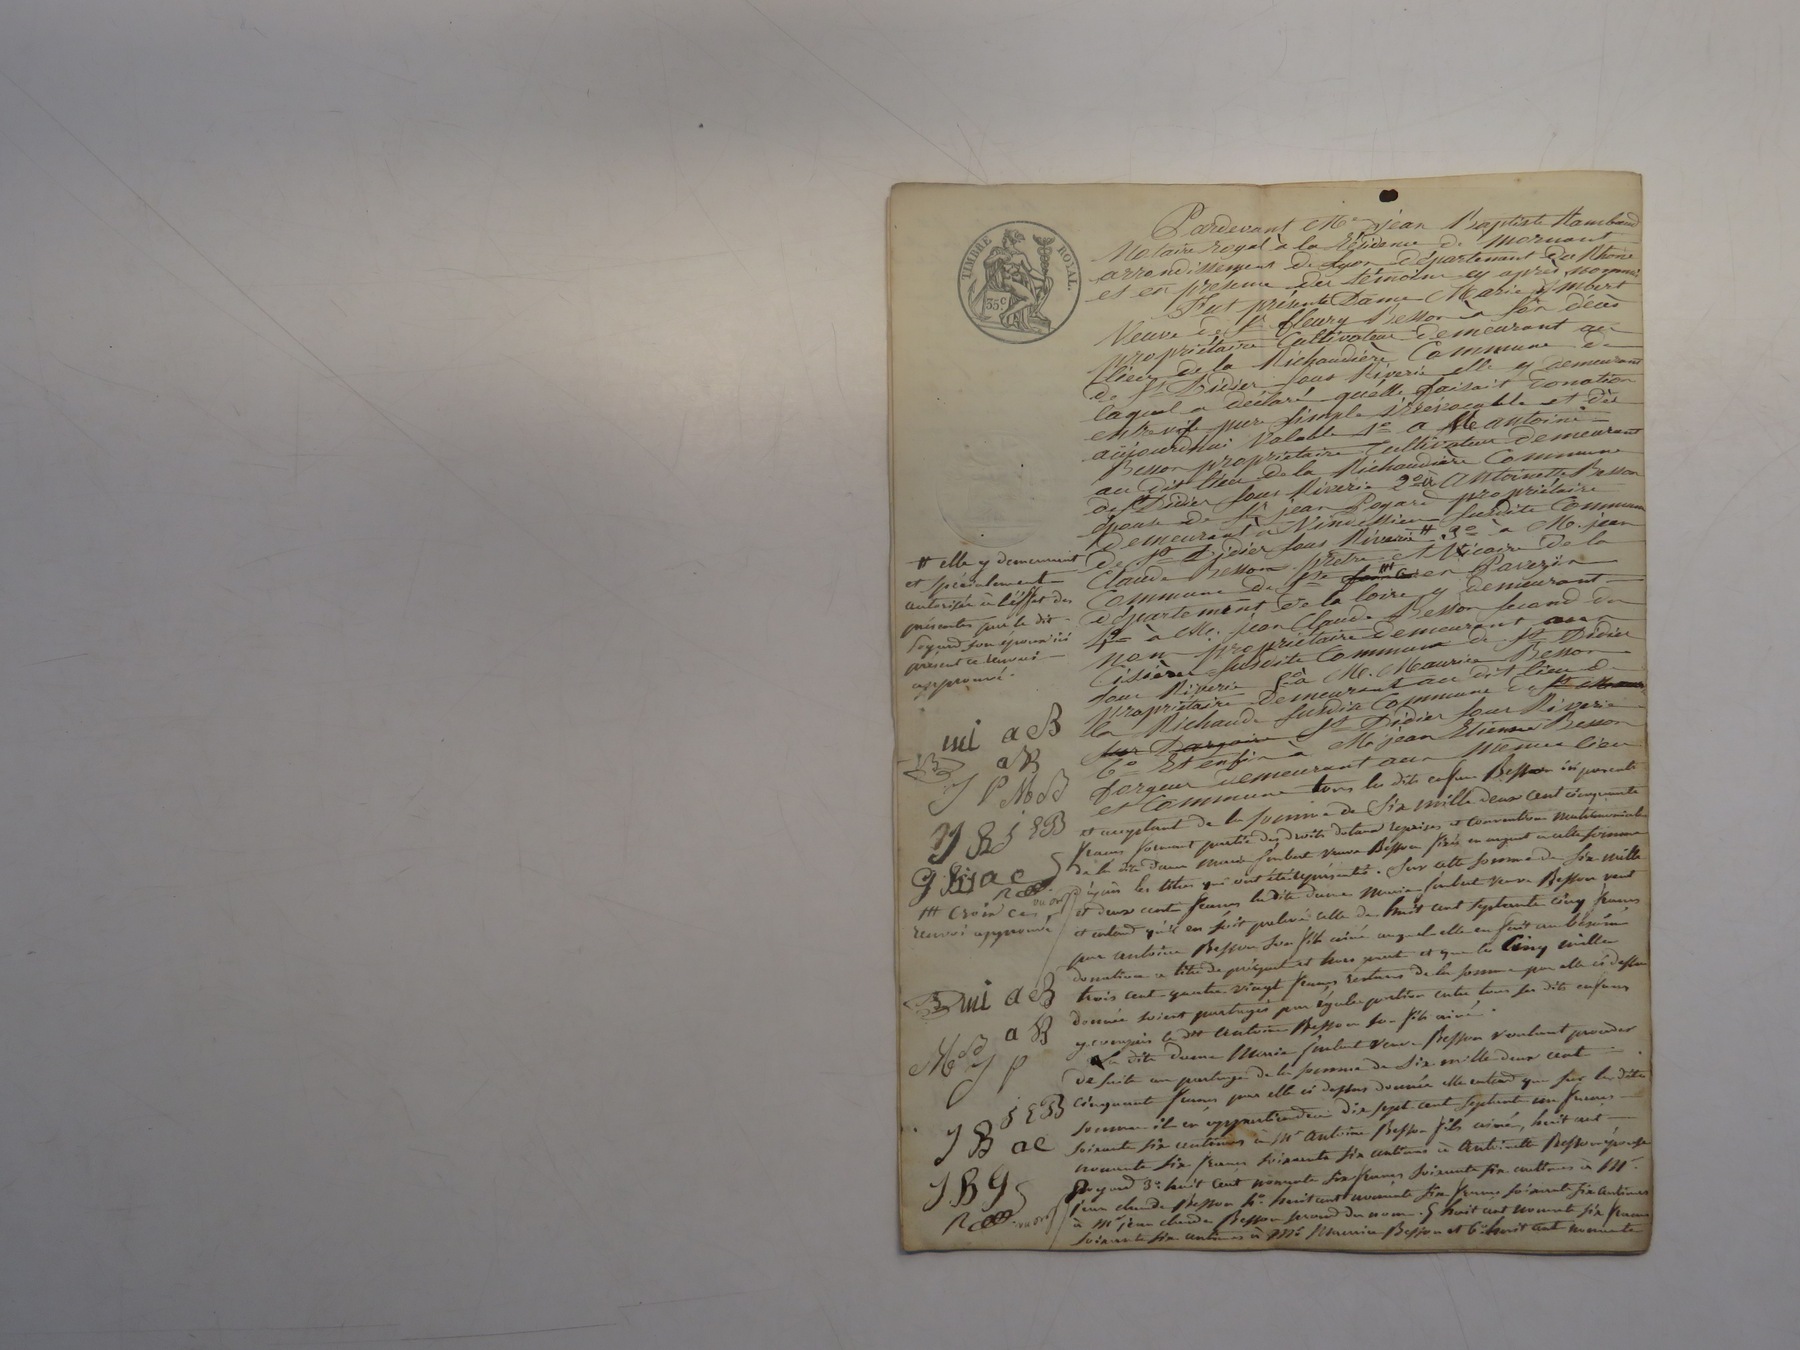 TIMBRE ROYAL.
35 c.
Pardevant Me jean Baptiste Rambaud
Notaire royal à la Résidence de Mornant
arrondissement de Lyon département du Rhône
et en presence des témoins cy après nommés
Fut présente Dame Marie Imbert
Veuve de Sr fleury Besson à son décès
propriétaire Cultivateur demeurant au
lieu de la Richaudière Commune de
de St Didier sous Riverie elle y demeurant
laquel a déclaré quelle faisait donation
entrevifs pure simple irrévocable et dès
aujourdhui valable 1o a Me antoine
Besson propriétaire Cultivateur demeurant
au dit lieu de la Richaudière Commune
de St Didier sous Riverie 2o à Antoinette Besson
épouse de Sr jean Poyard propriétaire
demeurant à susdite Commune
de St Didier sous Riverie # 3o à M. jean
Claude Besson prêtre et Vicaire de la
Commune de Ste en Pavezin
département de la loire y demeurant
4o à Me. jean Claude Besson second du
nom propriétaire demeurant au
susdite Commune de St Didier
sous Riverie 5o à M. Maurice Besson
propriétaire demeurant au dit lieu de
la Richaude susdite Commune de
St Didier sous Riverie
6o Et enfin à Me jean Etienne Besson
forgeur demeurant aux mêmes lieu
et Commune tous les dits enfans Besson ici presents
et acceptant de la somme de Six mille deux cent cinquante
francs formant partie des droits dotaux reprises et conventions matrimoniales
de la dite dame Marie Imbert veuve Besson fixés en argent à cette somme
d'après les titres qui ont été représentés. Sur cette somme de Six mille
et deux cent francs la dite dame Marie Imbert veuve Besson veut
et entend qu'il en soit prelevé celle de huit cent septante cinq francs
par antoine Besson son fils ainé auquel elle en fait au besoin
donation a titre de préciput et hors part et que les Cinq mille
trois cent quatre vingt francs restans de la somme par elle ci dessus
donnée soient partagés par égale portion entre tous ses dits enfans
y compris le dit Antoine Besson son fils ainé.
La dite dame Marie Imbert veuve Besson voulant proceder
de suite au partage de la somme de Six mille deux cent
cinquante francs par elle ci dessus donnée elle entend que sur la dite
somme il en appartiendra dix sept cent septante un francs
soixante six centimes à Mr Antoine Besson fils ainé, huit cent
nonante six francs soixante six centimes à Antoinette Besson épouse
Poyard 3o huit cent nonante six francs soixante six centimes à Mr.
jean claude Besson 4o. huit cent nonante six francs soixante six centimes
à Mr jean claude Besson second du nom. 5 huit cent nonante six francs
soixante six centimes à Mr Maurice Besson et 6o huit cent nonante
# elle y demeurant
et spécialement
autorisée à l'effet des
présentes par le dit
Poyard son époux ici
présent ce renvoi
approuvé.
mi a B
a B
J P M B
J B j E B
### croix ce
renvoi approuvé
mi a B
a B
M B J P
j E B
J B ae
J B G